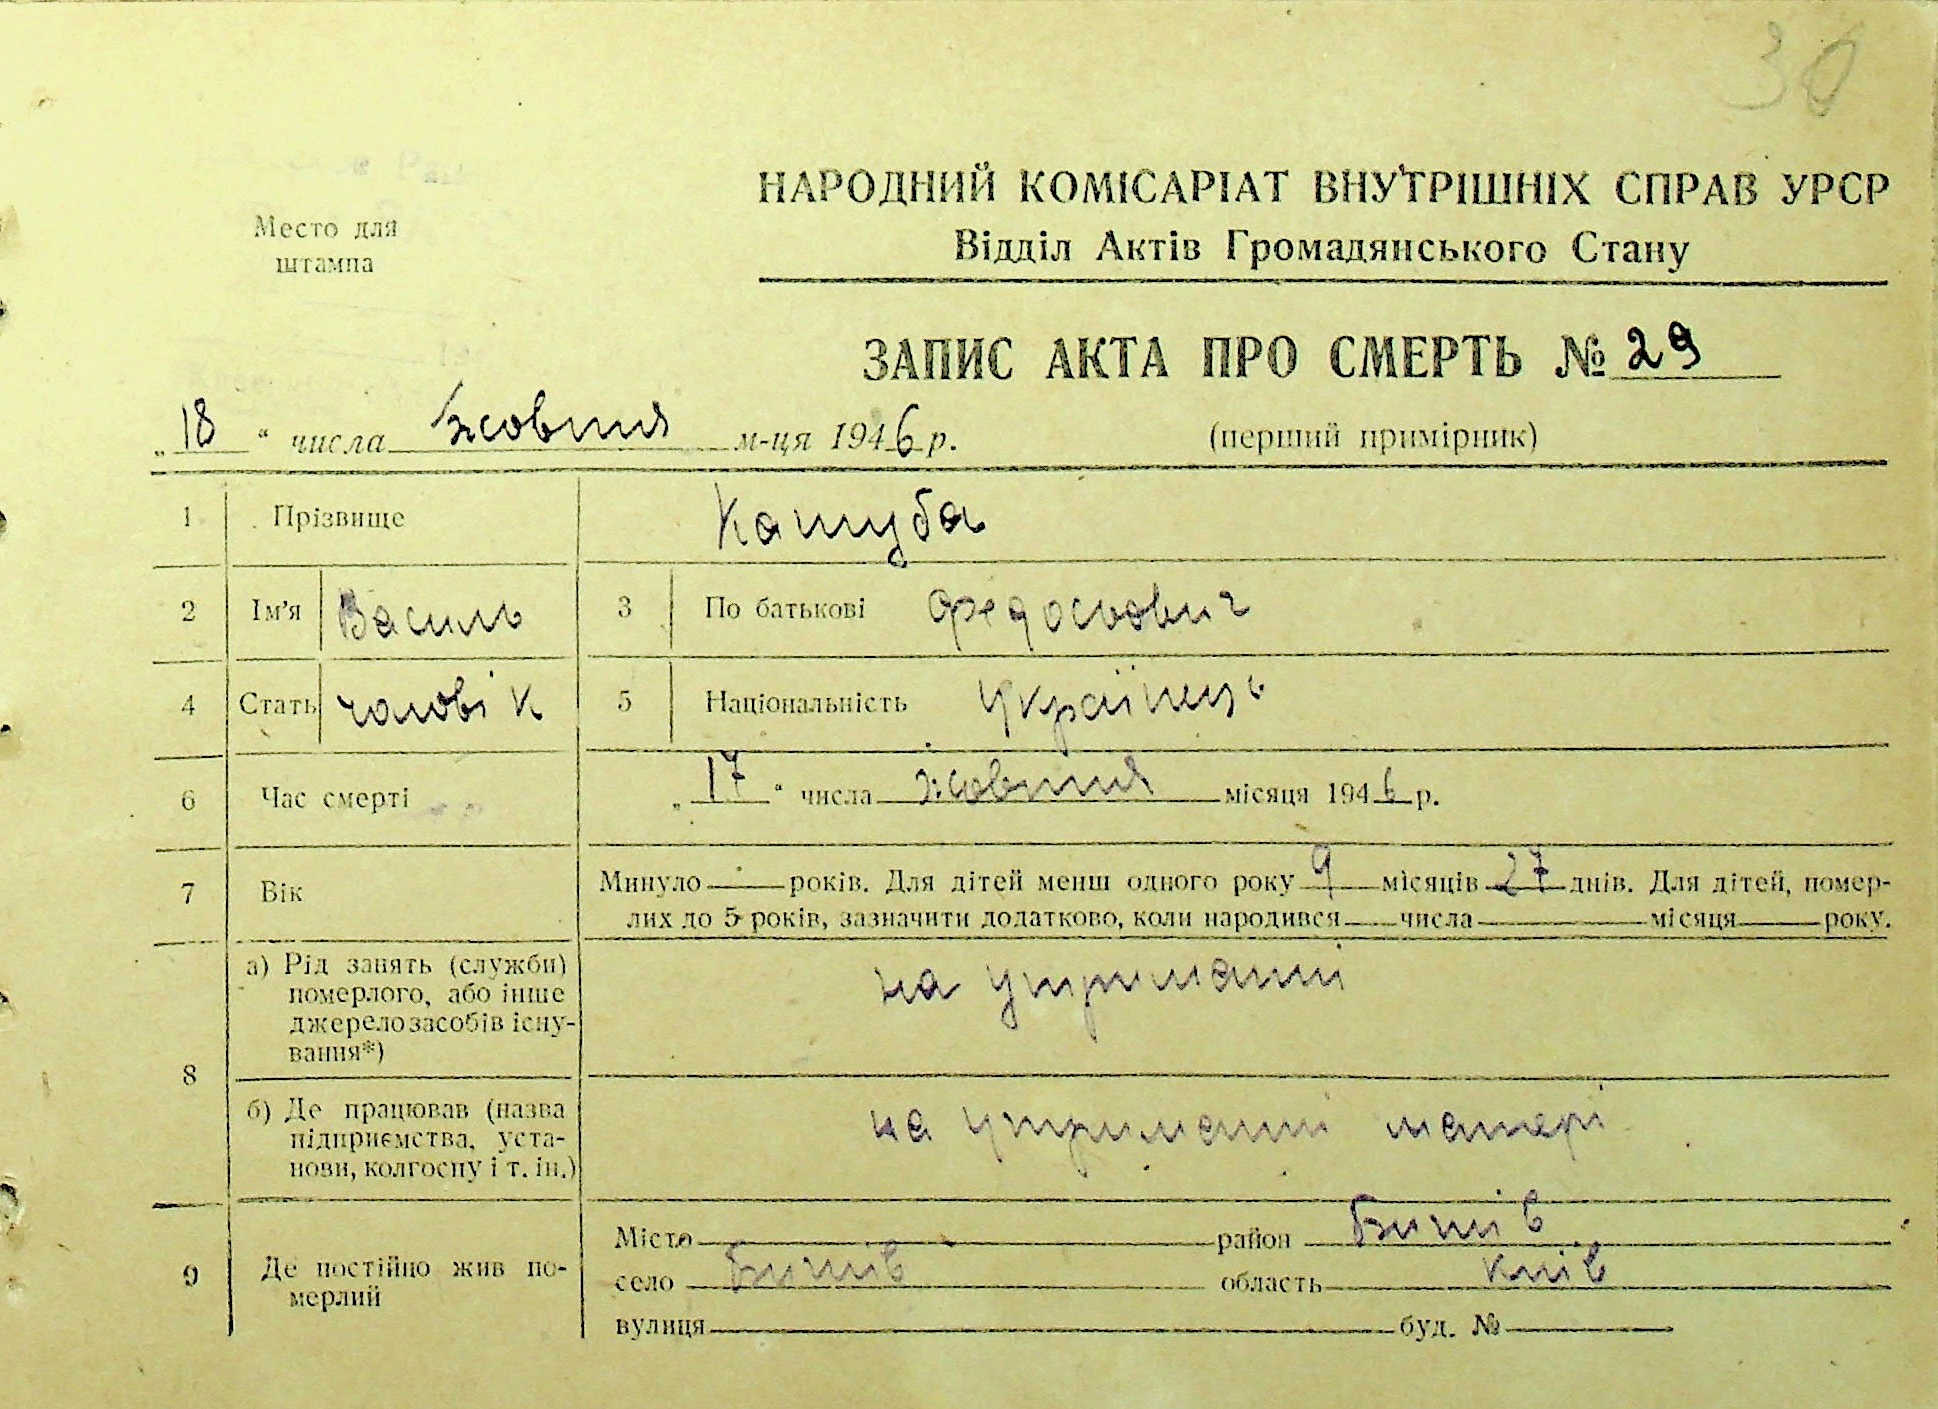 30
НАРОДНИЙ КОМІСАРІАТ ВНУТРІШНІХ СПРАВ УРСР
Відділ Актів Громадянського Стану
Место для
штампа
ЗАПИС АКТА ПРО СМЕРТЬ № 29
„18“ числа жовтня м-ця 1946 р. (перший примірник)
1 Прізвище Кашуба
2 Ім'я Василь 3 По батькові Федосьович
4 Стать чоловік 5 Національність Українець
6 Час смерті „17“ числа жовтня місяця 1946 р.
7 Вік Минуло — років. Для дітей менш одного року 9 місяців 27 днів. Для дітей, помер-
лих до 5 років, зазначити додатково, коли народився числа місяця року.
8 а) Рід занять (служби) померлого, або інше джерело засобів існу-вання*) на утриманні
б) Де працював (назва підприємства, уста-нови, колгоспу і т. ін.) на утриманні матері
9 Де постійно жив по-мерлий Місто район Бишів
село Бишів область Київ
вулиця буд. №